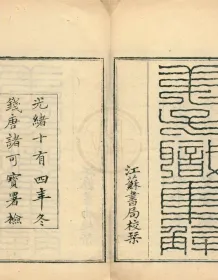 弟子職集解
江蘇書局校栞
光緒十有四年冬
錢唐諸可寶署檢